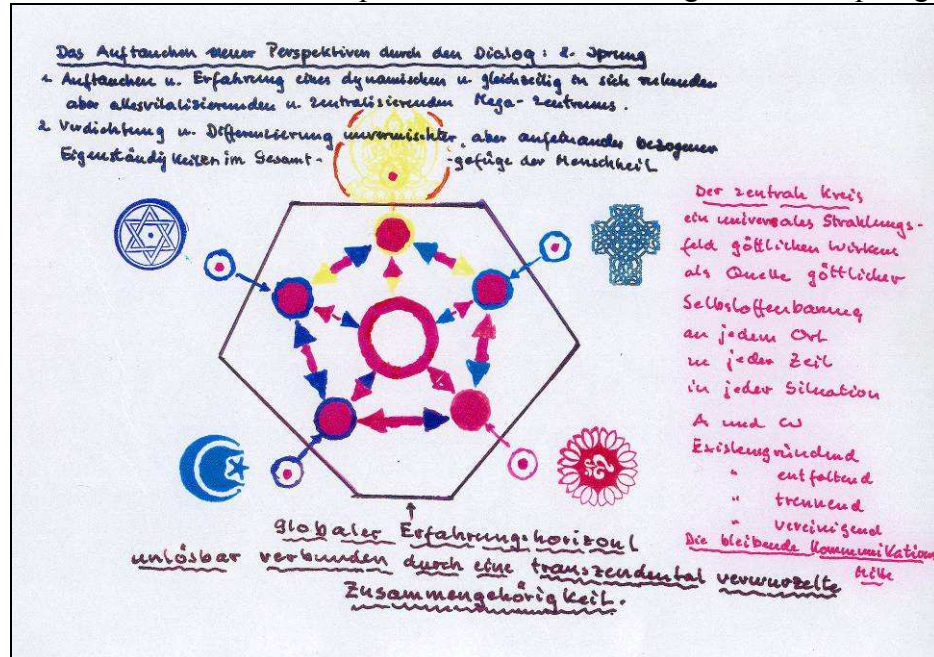 Das Auftauchen neuer Perspektiven durch den Dialog: 2. Sprung
1. Auftauchen u. Erfahrung eines dynamischen u. gleichzeitig in sich ruhenden
aber allesvitalisierenden u. zentralisierenden Mega-Zentrums.
2. Verdichtung u. Differenzierung unvermischter, aber aufeinander bezogener
Eigenständigkeiten im Gesamt- -gefüge der Menschheit
Der zentrale Kreis
ein universales Strahlungs-
feld göttlichen Wirkens
als Quelle göttlicher
Selbstoffenbarung
an jedem Ort
zu jeder Zeit
in jeder Situation
A und ω
Existenzgründend
" entfaltend
" trennend
" vereinigend
Die bleibende Kommunikations
Mitte
Globaler Erfahrungshorizont
unlösbar verbunden durch eine transzendental verwurzelte
Zusammengehörigkeit.